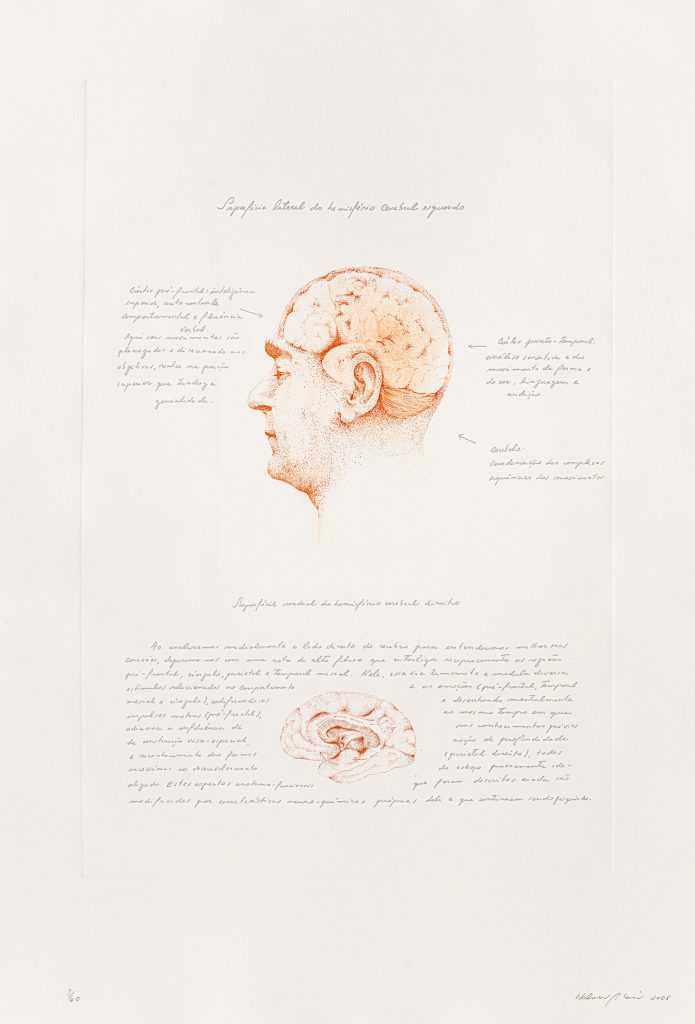 Superfície lateral do hemisfério cerebral esquerdo
Córtex pré-frontal: inteligência
superior, auto-controle
comportamental e fluência
verbal.
Aqui seus movimentos são
planejados e direcionados aos
objetivos, realça na porção
superior que traduz a
genialidade.
Córtex parieto-temporal:
análise sensitiva e do
movimento da forma e
da cor, linguagem e
audição.
Cerebelo:
Coordenação das complexas
sequências dos movimentos
Superfície medial do hemisfério cerebral direito
Ao analisarmos medialmente o lado direito do cérebro para entendermos melhor suas
conexões, deparamo-nos com uma rota de alto fluxo que interliga reciprocamente as regiões
pré-frontal, cíngulo, parietal e temporal mesial. Nele, essa via transmite e modula diversos
estímulos relacionados ao comportamento e as emoções (pré-frontal, temporal
mesial e cíngulo), codificando os e desenhando mentalmente
impulsos motores (pré-frontal), ao mesmo tempo em que
a influência de seus conhecimentos prévios
de construção viso-espacial, noção de profundidade
e reconhecimento das formas (parietal direito), todos
necessários ao desenvolvimento do esboço previamente ide-
alizado. Estes aspectos anatomo-funcionais que foram descritos ainda são
modificados por características neuro-químicas próprias dele e que continuam sendo pesquisadas.
7/60
2008